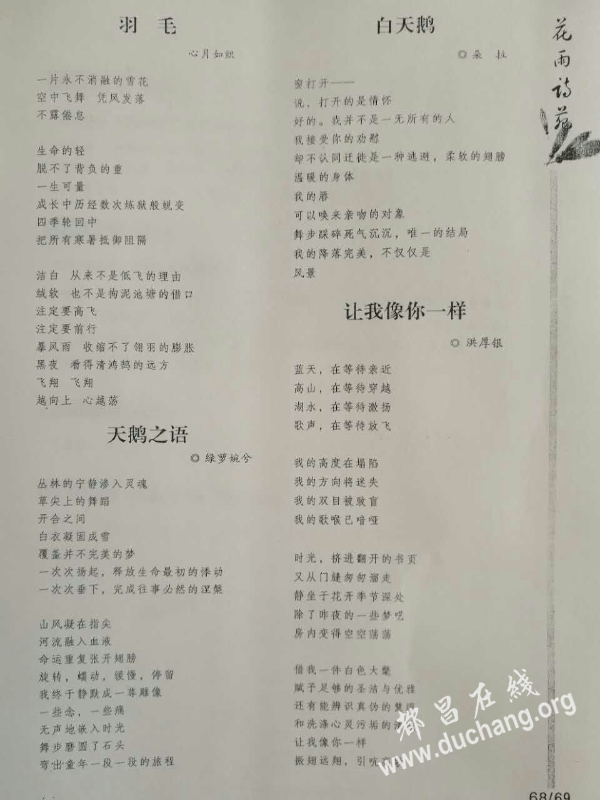 羽 毛
心月如织
一片永不消融的雪花
空中飞舞 凭风发落
不露倦怠
生命的轻
脱不了背负的重
一生可量
成长中历经数次炼狱般蜕变
四季轮回中
把所有寒暑抵御阻隔
洁白 从来不是低飞的理由
绒软 也不是拘泥池塘的借口
注定要高飞
注定要前行
暴风雨 收缩不了翎羽的膨胀
黑夜 看得清鸿鹄的远方
飞翔 飞翔
越向上 心越荡
天鹅之语
◎ 绿萝婉兮
丛林的宁静渗入灵魂
草尖上的舞蹈
开合之间
白衣凝固成雪
覆盖并不完美的梦
一次次扬起，释放生命最初的悸动
一次次垂下，完成往事必然的涅槃
山风凝在指尖
河流融入血液
命运重复张开翅膀
旋转，蠕动，缓慢，停留
我终于静默成一尊雕像
一些念，一些痛
无声地嵌入时光
舞步磨圆了石头
弯出童年一段一段的旅程
白天鹅
◎ 朵 拉
窗打开——
说，打开的是情怀
好的。我并不是一无所有的人
我接受你的劝慰
却不认同迁徙是一种逃避，柔软的翅膀
温暖的身体
我的唇
可以唤来亲吻的对象
舞步踩碎死气沉沉，唯一的结局
我的降落完美，不仅仅是
风景
让我像你一样
◎ 洪厚银
蓝天，在等待亲近
高山，在等待穿越
湖水，在等待激扬
歌声，在等待放飞
我的高度在塌陷
我的方向将迷失
我的双目被驶盲
我的歌喉已喑哑
时光，挤进翻开的书页
又从门缝匆匆溜走
静坐于花开季节深处
除了昨夜的一些梦呓
房内变得空空荡荡
借我一件白色大氅
赋予足够的圣洁与优雅
还有能辨识真伪的
和洗涤心灵污垢的
让我像你一样
振翅远翔，引吭
花雨诗苑
都昌在线
www.duchang.org
68/69